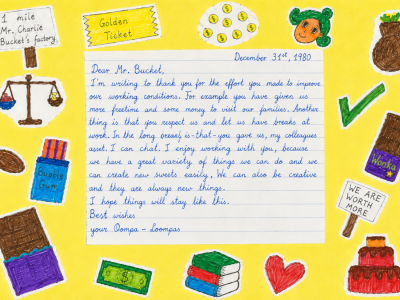 1 mile
Mr. Charlie
Bucket's factory
Golden
Ticket
December 31st, 1980
Dear Mr. Bucket,
I'm writing to thank you for the effort you made to improve
our working conditions. For example you have given us
more freetime and some money to visit our families. Another
thing is that you respect us and let us have breaks at
work. In the long breaks, is-that-you gave us, my colleagues
asset. I can chat. I enjoy working with you, because
we have a great variety of things we can do and we
can create new sweets easily. We can also be creative
and they are always new things.
I hope things will stay like this.
Best wishes
your Oompa - Loompas
Bubble
Gum
Wonka
WE ARE
WORTH
MORE